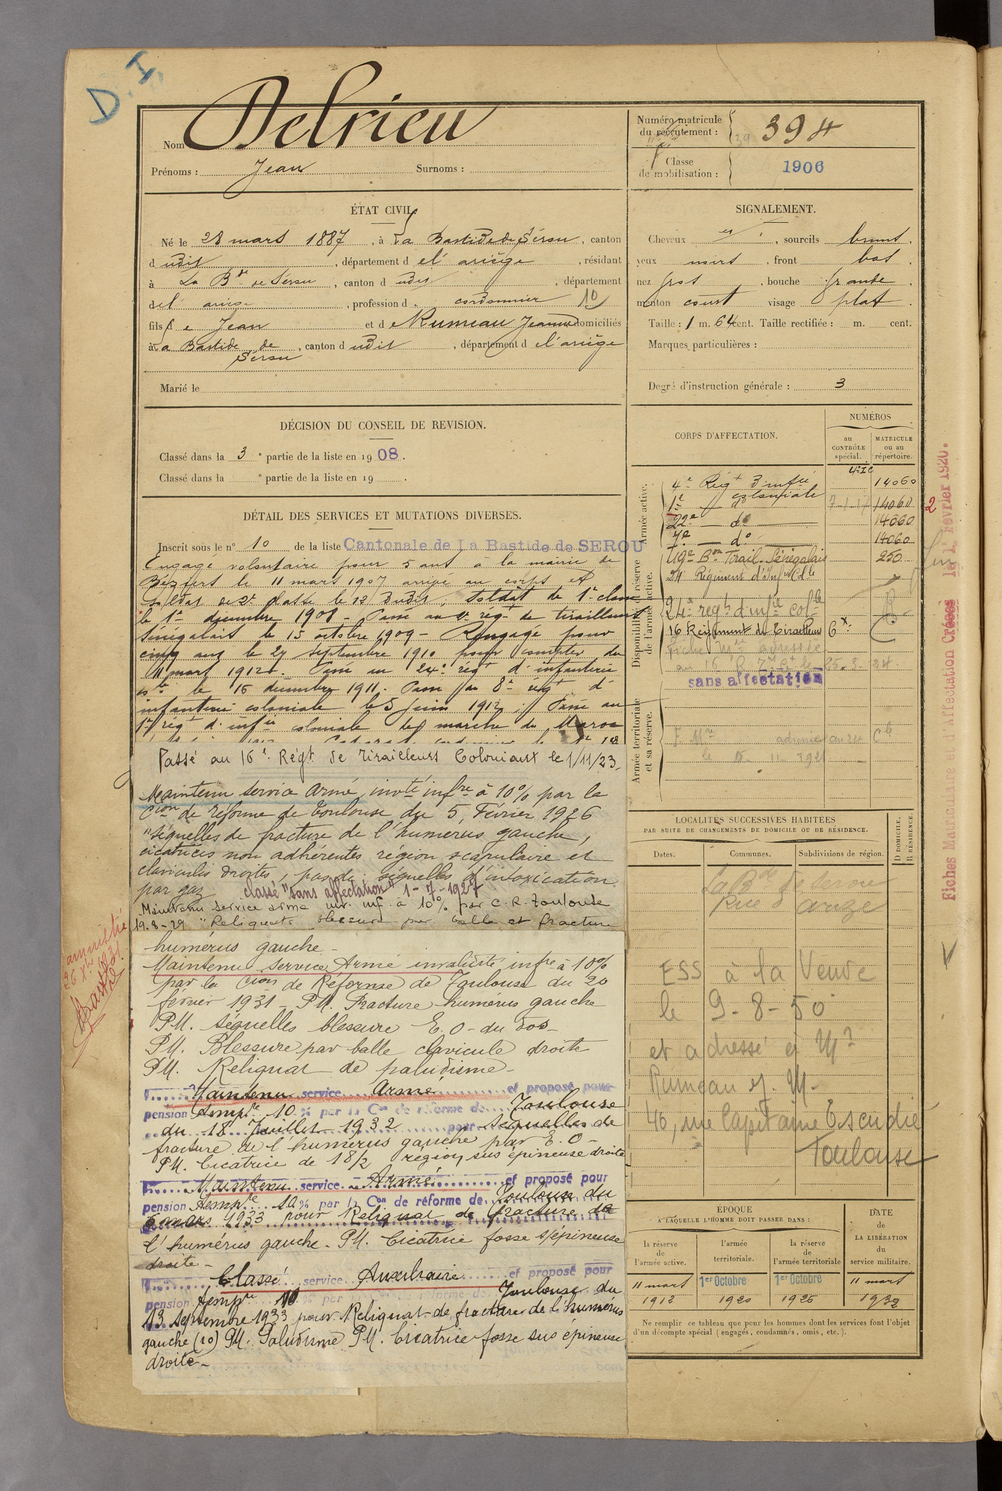 D. I.
Nom Delrieu
Prénoms : Jean Surnoms :
Numéro matricule du recrutement : 394
Classe de mobilisation : 1906
ÉTAT CIVIL
Né le 28 mars 1887, à La Bastide de Sérou, canton
d udit, département d el' ariège, résidant
à La Bde de Sérou, canton d udit, département
de l' ariège, profession d cordonnier 10
fils de Jean et de Rumeau Jeanne domiciliés
à La Bastide de Sérou, canton d udit, département d el' ariège
Marié le
SIGNALEMENT.
Cheveux et , sourcils bruns.
yeux noirs, front bas,
nez gros, bouche grande,
menton court visage plat.
Taille : 1 m. 64 cent. Taille rectifiée : m. cent.
Marques particulières :
Degré d'instruction générale : 3
DÉCISION DU CONSEIL DE REVISION.
Classé dans la 3e partie de la liste en 1908.
Classé dans la e partie de la liste en 19 .
DÉTAIL DES SERVICES ET MUTATIONS DIVERSES.
Inscrit sous le n° 10 de la liste Cantonale de La Bastide de SEROU
Engagé volontaire pour 5 ans à la mairie de
le 11 mars 1907 arrivé au corps et
soldat de 2e classe le 12 dudit. Soldat de 1e classe
le 1er décembre 1908. Passé au régt de tirailleurs
sénégalais le 15 octobre 1909 - Rengagé pour
cinq ans le 27 septembre 1910 pour compter du
11 mars 1912. Passé au 24e régt d'infanterie
le 16 décembre 1911. Passé au 8e régt d'
infanterie coloniale le 5 juin 1912. Passé au
1er régt d'infie coloniale de marche du Maroc
Passé au 16e Régt de Tirailleurs Coloniaux le 1/11/23.
Maintenu service armé, invté infre à 10% par la
Cion de réforme de Toulouse du 5 Février 1926
"séquelles de fracture de l'humérus gauche,
cicatrices non adhérentes région scapulaire et
clavicules droites, pas de séquelles d'intoxication
par gaz classé "sans affectation" 1-7-1927
Maintenu service armé inv. inf. à 10% par C.R. Toulouse
19-3-29 "Reliquats blessure par balle et fracture
humérus gauche -
Maintenu service Armé invalidité infre à 10%
par la Cion de Réforme de Toulouse du 20
février 1931 - P.M. Fracture humérus gauche
P.M. séquelles blessure E.O - du dos -
P.M. Blessure par balle clavicule droite
P.M. Reliquat de paludisme -
Maintenu service Armé et proposé pour
pension tempre 10 % par la Con de réforme de Toulouse
du 18 Juillet 1932 pour séquelles de
fracture de l'humérus gauche par E.O -
P.M. Cicatrice de 18/2 région sus épineuse droite
Maintenu service Armé et proposé pour
pension tempre 10 % par la Con de réforme de Toulouse du
1933 pour Reliquat de fracture de
l'humérus gauche - P.M. Cicatrice fosse s/épineuse
droite -
Classé service Auxiliaire et proposé pour
pension tempre 10 % par Toulouse du
13 Septembre 1933 pour Reliquat de fracture de l'humérus
gauche (10) P.M. Paludisme P.M. Cicatrice fosse sus épineuse
droite -
amnistié
CORPS D'AFFECTATION.
NUMÉROS
au CONTRÔLE spécial.
MATRICULE ou au répertoire.
Armée active.
4e Régt d'infie coloniale 14060
1e do 14060
22e do 14060
7e do 14060
Bon Tirail. Sénégalais 250
Disponibilité et réserve de l'armée active.
24 Régiment d'Infie Cole
24e régt d'infie cole
16 Régiment de Tirailleurs Cx.
sans affectation
Armée territoriale et sa réserve.
LOCALITÉS SUCCESSIVES HABITÉES
PAR SUITE DE CHANGEMENTS DE DOMICILE OU DE RÉSIDENCE.
Dates.
Communes.
Subdivisions de région.
D. DOMICILE.
R. RÉSIDENCE.
La Bde de Sérou
Rue d'
ESS à la Veuve
le 9-8-50
et adressé à Me
Rumeau
46, rue Capitaine Escudié
Toulouse
ÉPOQUE
A LAQUELLE L'HOMME DOIT PASSER DANS :
la réserve de l'armée active.
l'armée territoriale.
la réserve de l'armée territoriale
DATE de LA LIBÉRATION du service militaire.
11 mars 1912
1er Octobre 1920
1er Octobre 1926
11 mars 1932
Ne remplir ce tableau que pour les hommes dont les services font l'objet
d'un décompte spécial (engagés, condamnés, omis, etc.).
Fiches Matriculaire et d'Affectation Créées le 1 Février 1920.
2